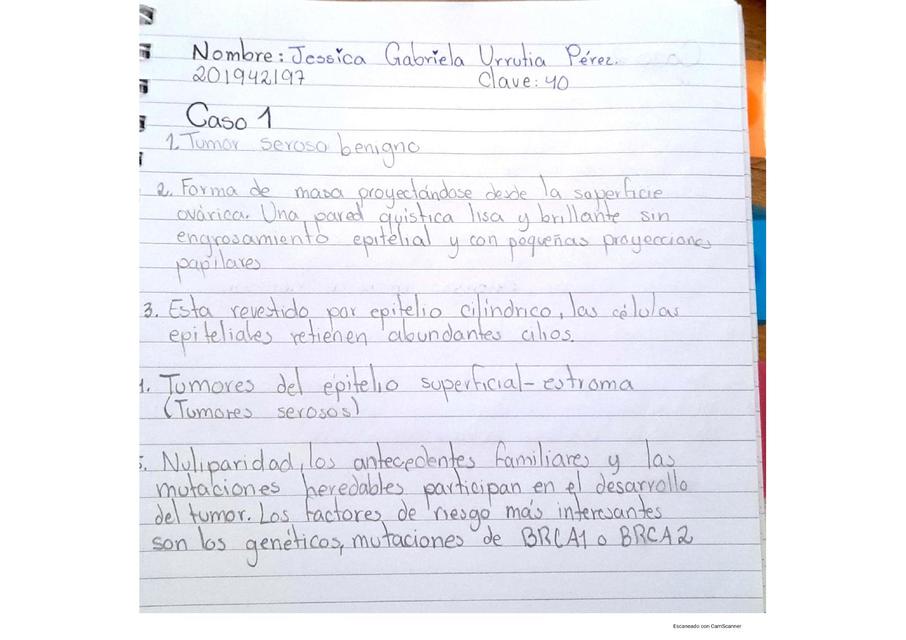 Nombre: Jessica Gabriela Urrutia Pérez.
201942197 Clave: 40
Caso 1
1. Tumor seroso benigno
2. Forma de masa proyectándose desde la superficie
ovárica. Una pared quística lisa y brillante sin
engrosamiento epitelial y con pequeñas proyecciones
papilares
3. Esta revestido por epitelio cilíndrico, las células
epiteliales retienen abundantes cilios.
1. Tumores del epitelio superficial-estroma
(Tumores serosos)
5. Nuliparidad, los antecedentes familiares y las
mutaciones heredables participan en el desarrollo
del tumor. Los factores de riesgo más interesantes
son los genéticos, mutaciones de BRCA1 o BRCA2
Escaneado con CamScanner